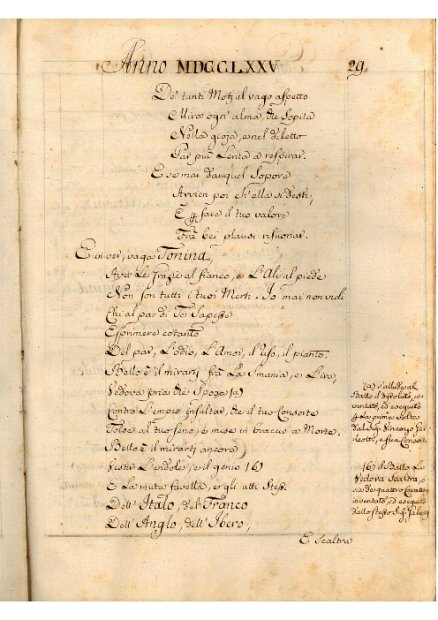 Anno MDCCLXXV 29.
De' tanti Moti al vago aspetto
Mirar ogn' alma, che sopita
Nella gioja, e nel diletto
Par più lenta a respirar.
E se mai da quel sopore
Avvien poi ch' ella si desti,
E fare il tuo valore
Frà bei plausi risuonar.
E non, vaga Tonina,
Aver Le Grazie al fianco, e L'Ale al piede
Non son tutti i tuoi Merti. Io mai non vidi
Chi al par di Te sapesse
Esprimere cotanto
Del par, L'odio, L'Amor, il riso, il pianto.
Bello è il mirarti frà La smania, e L'ira,
Vedova pria che Sposa (a)
Contro L'empio insultar, che il tuo Consorte
Tolse al tuo seno, e mise in braccio a Morte.
Bello è il mirarti ancora
Vestir L'indole, e il genio (b)
E La muta favella, e gli atti stessi
Dell' Italo, del Franco
Dell' Anglo, dell' Ibero,
E Scaltra
(a) S'allude al
Ballo
inventato, ed eseguito
dal Sig. Vincenzo
e sua Consorte
(b) Il Ballo La
Vedova Scaltra, o
sia de quattro
inventato, ed eseguito
dallo stesso Sig.